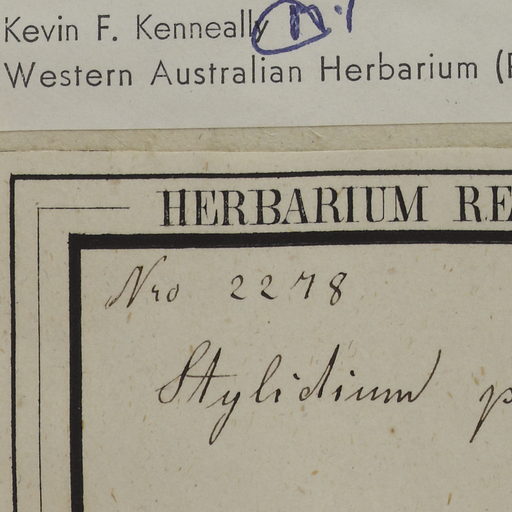 Kevin F. Kenneally
Western Australian Herbarium (
HERBARIUM RE
Nro 2278
Stylidium p